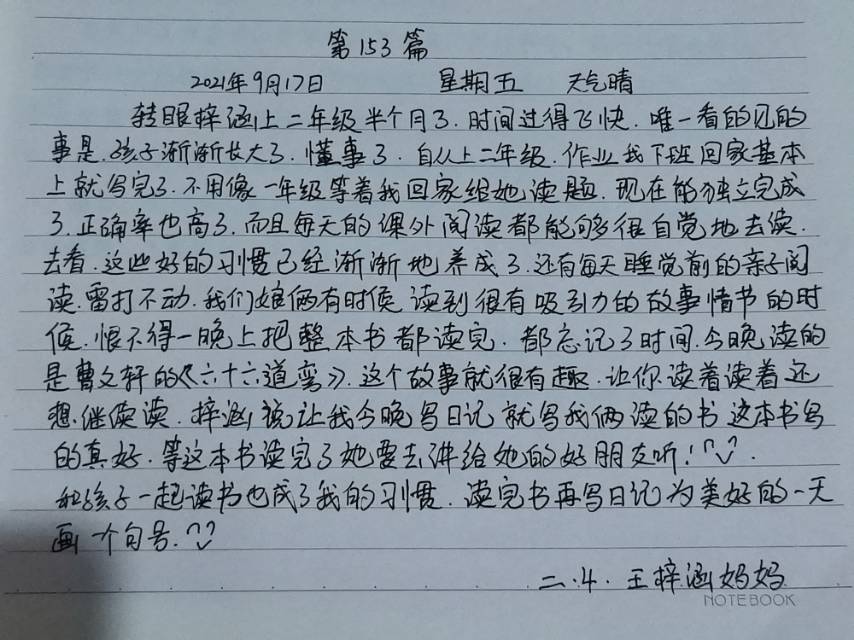 第153篇
2021年9月17日 星期五 天气晴
转眼梓涵上二年级半个月了.时间过得飞快.唯一看的见的
事是.孩子渐渐长大了.懂事了.自从上二年级.作业我下班回家基本
上就写完了.不用像一年级等着我回家给她读题.现在能独立完成
了.正确率也高了.而且每天的课外阅读都能够很自觉地去读.
去看.这些好的习惯已经渐渐地养成了.还有每天睡觉前的亲子阅
读.雷打不动.我们娘俩有时候读到很有吸引力的故事情节的时
候.恨不得一晚上把整本书都读完.都忘记了时间.今晚读的
是曹文轩的《六十六道弯》.这个故事就很有趣.让你读着读着还
想继续读.梓涵说让我今晚写日记就写我俩读的书这本书写
的真好.等这本书读完了她要去讲给她的好朋友听!
和孩子一起读书也成了我的习惯.读完书再写日记为美好的一天
画一个句号.
二.4.王梓涵妈妈
NOTEBOOK